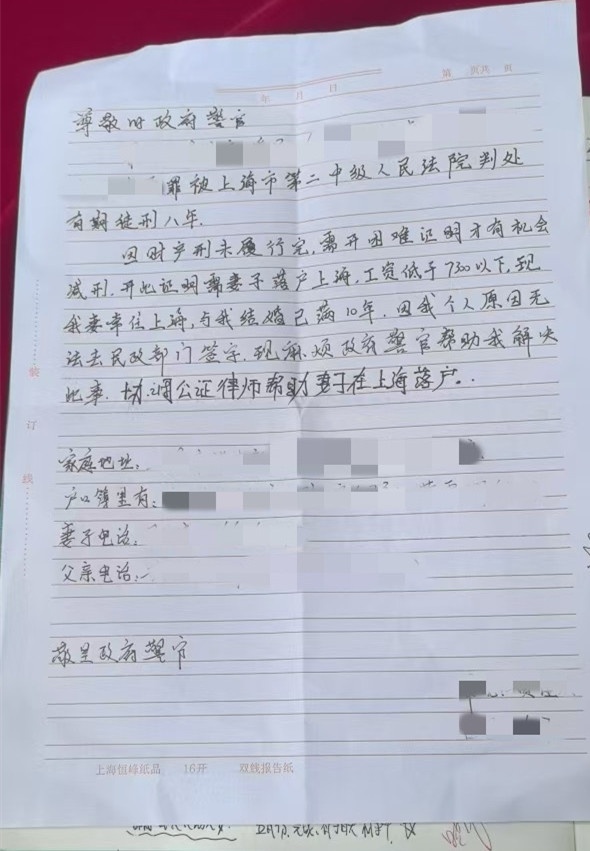 第 页共 页
年 月 日
尊敬的政府警官
罪被上海市第二中级人民法院判处
有期徒刑八年.
因财产刑未履行完,需开困难证明才有机会
减刑.开此证明需妻子落户上海,工资低于7300以下,现
我妻幸住上海,与我结婚已满10年,因我个人原因无
法去民政部门签字.现麻烦政府警官帮助我解决
此事.协调公证律师帮助妻子在上海落户.
家庭地址:
户口簿里有:
妻子电话:
父亲电话:
敬呈政府警官
装
订
线
上海恒峰纸品 16开 双线报告纸